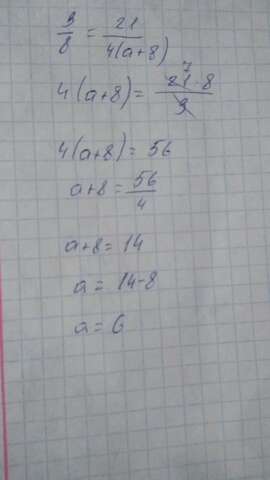 3/8 = 21/4(a+8)
4(a+8) = 21·8/3 7
4(a+8) = 56
a+8 = 56/4
a+8 = 14
a = 14-8
a = 6